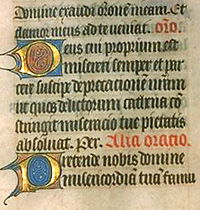 Domine exaudi oronē meam. Et
clamor meus ad te ueniat. oro.
Deus cui proprium est
misereri semper et par
cere suscipe deprecationē nr̄am
ut quos delictorum cathena cō
stringit miseratio tue pietatis
absoluat. Per. Alia oracio.
Pretende nobis domine
misericordiā tuā famu